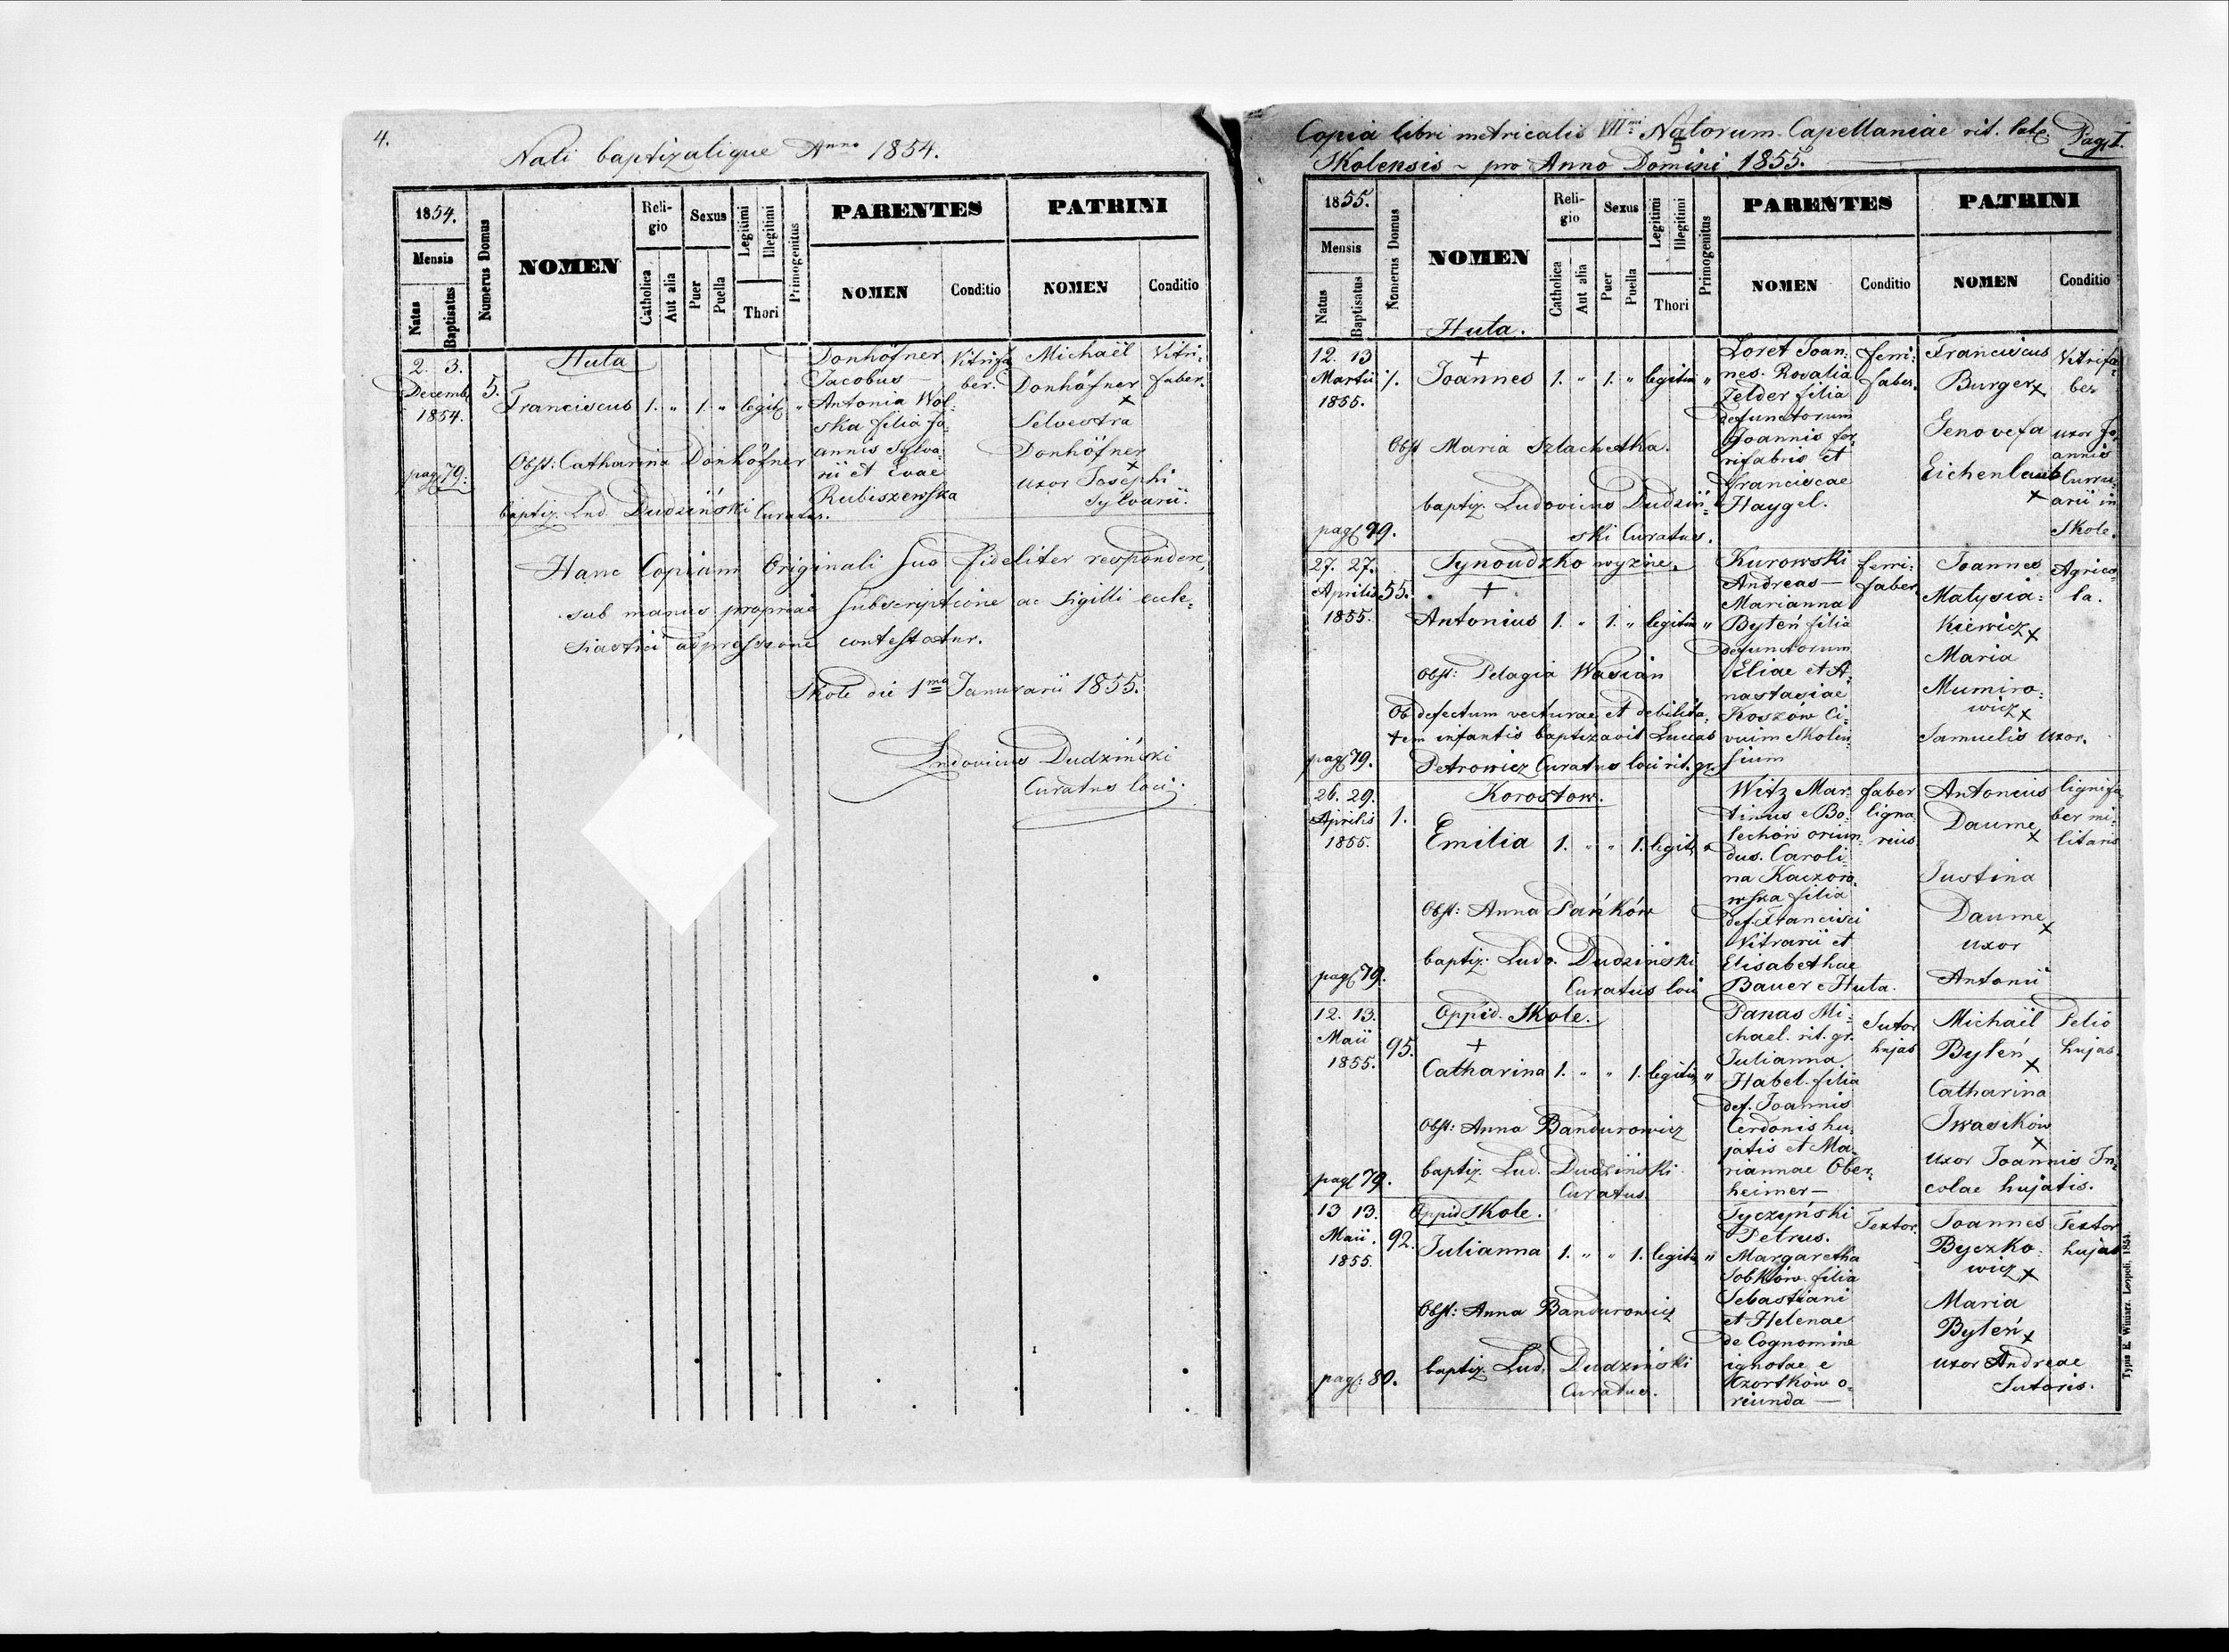 4.
Nati baptizatique Anno 1854.
1854.
Mensis
Natus
Baptisatus
Numerus Domus
NOMEN
Reli-
gio
Catholica
Aut alia
Sexus
Puer
Puella
Legitimi
Illegitimi
Thori
Primogenitus
PARENTES
NOMEN
Conditio
PATRINI
NOMEN
Conditio
2. 3.
Decemb.
1854.
5.
Huta
Franciscus 1. " 1. " legit "
Obst: Catharina Donhöfner
baptiz. Lud. Dudziński Curatus.
pag 79.
Donhöfner
Jacobus —
Antonia Wol-
ska filia Jo-
annis Sylva-
rii et Evae
Rubiszewska
Vitrifa
ber.
Michaël
Donhöfner
x
Selvestra
Donhöfner
x
uxor Josephi
Sylvarii.
Vitri-
faber.
Hanc Copiam Originali suo fideliter respondere,
sub manus propriae subscriptione ac sigilli eccle-
siastici adpressione contestatur.
Skole die 1ma Januarii 1855.
Ludovicus Dudziński
Curatus loci.
Copia libri metricalis VIImi Natorum Capellaniae rit. lat. Pag. I.
5
Skolensis ~ pro Anno Domini 1855.
1855.
Mensis
Natus
Baptisatus
Numerus Domus
NOMEN
Reli-
gio
Catholica
Aut alia
Sexus
Puer
Puella
Legitimi
Illegitimi
Thori
Primogenitus
PARENTES
NOMEN
Conditio
PATRINI
NOMEN
Conditio
Huta.
12. 13
Martii
1855.
+
Joannes 1. " 1. " legitim "
Obst Maria Szlachetka.
baptiz. Ludovicus Dudziń-
ski Curatus.
pag 79.
Loret Joan-
nes. Rosalia
Zelder filia
defunctorum
Joannis fer-
rifabris et
Franciscae
Haygel.
ferri-
faber.
Franciscus
Burger x
Genovefa
Eichenlaub
x
Vitrifa-
ber
uxor Jo-
annis
Curru-
arii in
Skole.
27. 27.
Aprilis
1855.
55.
Synoudzko wyzne.
+
Antonius 1. " 1. " legitim "
Obst: Pelagia Wasian
Ob defectum vecturae et debilita-
tem infantis baptizavit Lucas
Petrowicz Curatus loci rit. gr.
pag 79.
Kurowski
Andreas —
Marianna
Byteń filia
defunctorum
Eliae et A-
nastasiae
Koszów Ci-
vium Skolen-
sium
ferri-
faber
Joannes
Matysia-
kiewicz x
Maria
Mumiro-
wicz x
Samuelis uxor.
Agrico-
la.
26. 29.
Aprilis
1855.
1.
Korostow.
Emilia 1. " " 1. legit "
Obst: Anna Pańków
baptiz. Ludo. Dudziński
Curatus loci
pag 79.
Witz Mar-
tinus e Bo-
lechów oriun-
dus. Caroli-
na Kaczoro-
wska filia
def. Francisci
Vitrarii et
Elisabethae
Bauer e Huta.
faber
ligna-
rius
Antonius
Daume
x
Justina
Daume
x
uxor
Antonii
lignifa
ber mi-
litaris
12. 13.
Maii
1855.
95.
Oppid. Skole.
+
Catharina 1. " " 1. legitim "
Obst: Anna Bandurowicz
baptiz. Lud. Dudziński
Curatus
pag 79.
Panas Mi-
chael. rit. gr.
Julianna
Habel filia
def. Joannis
Cerdonis hu-
jatis et Ma-
riannae Ober-
heimer —
Sutor
hujas
Michaël
Byteń
x
Catharina
Iwasików
x
uxor Joannis In-
colae hujatis.
Pelio
hujas.
13 13.
Maii.
1855.
92.
Oppid Skole.
Julianna 1. " " 1. legitim "
Obst: Anna Bandurowicz
baptiz. Lud. Dudziński
Curatus.
pag: 80.
Tyczyński
Petrus.
Margaretha
Sobków filia
Sebastiani
et Helenae
de Cognomine
ignotae e
Czortków o-
riunda —
Textor.
Joannes
Byczko-
wicz x
Maria
Byteń x
uxor Andreae
Sutoris.
Textor
hujas
Typis E. Winiarz. Leopoli. 1854.